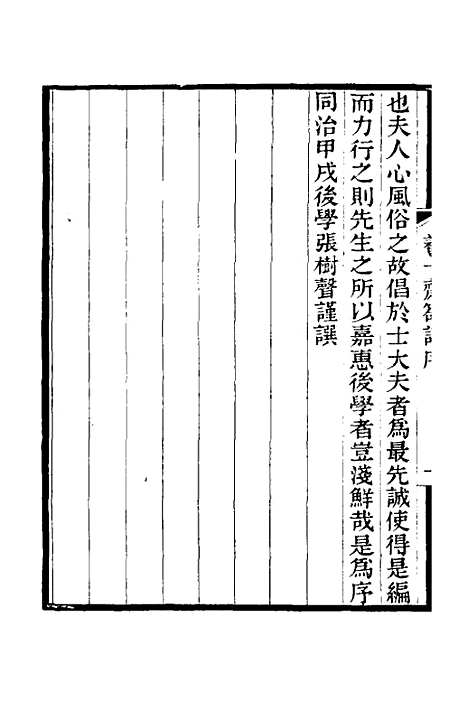 也夫人心風俗之故倡於士大夫者爲最先誠使得是編
而力行之則先生之所以嘉惠後學者豈淺鮮哉是爲序
同治甲戌後學張樹聲謹譔